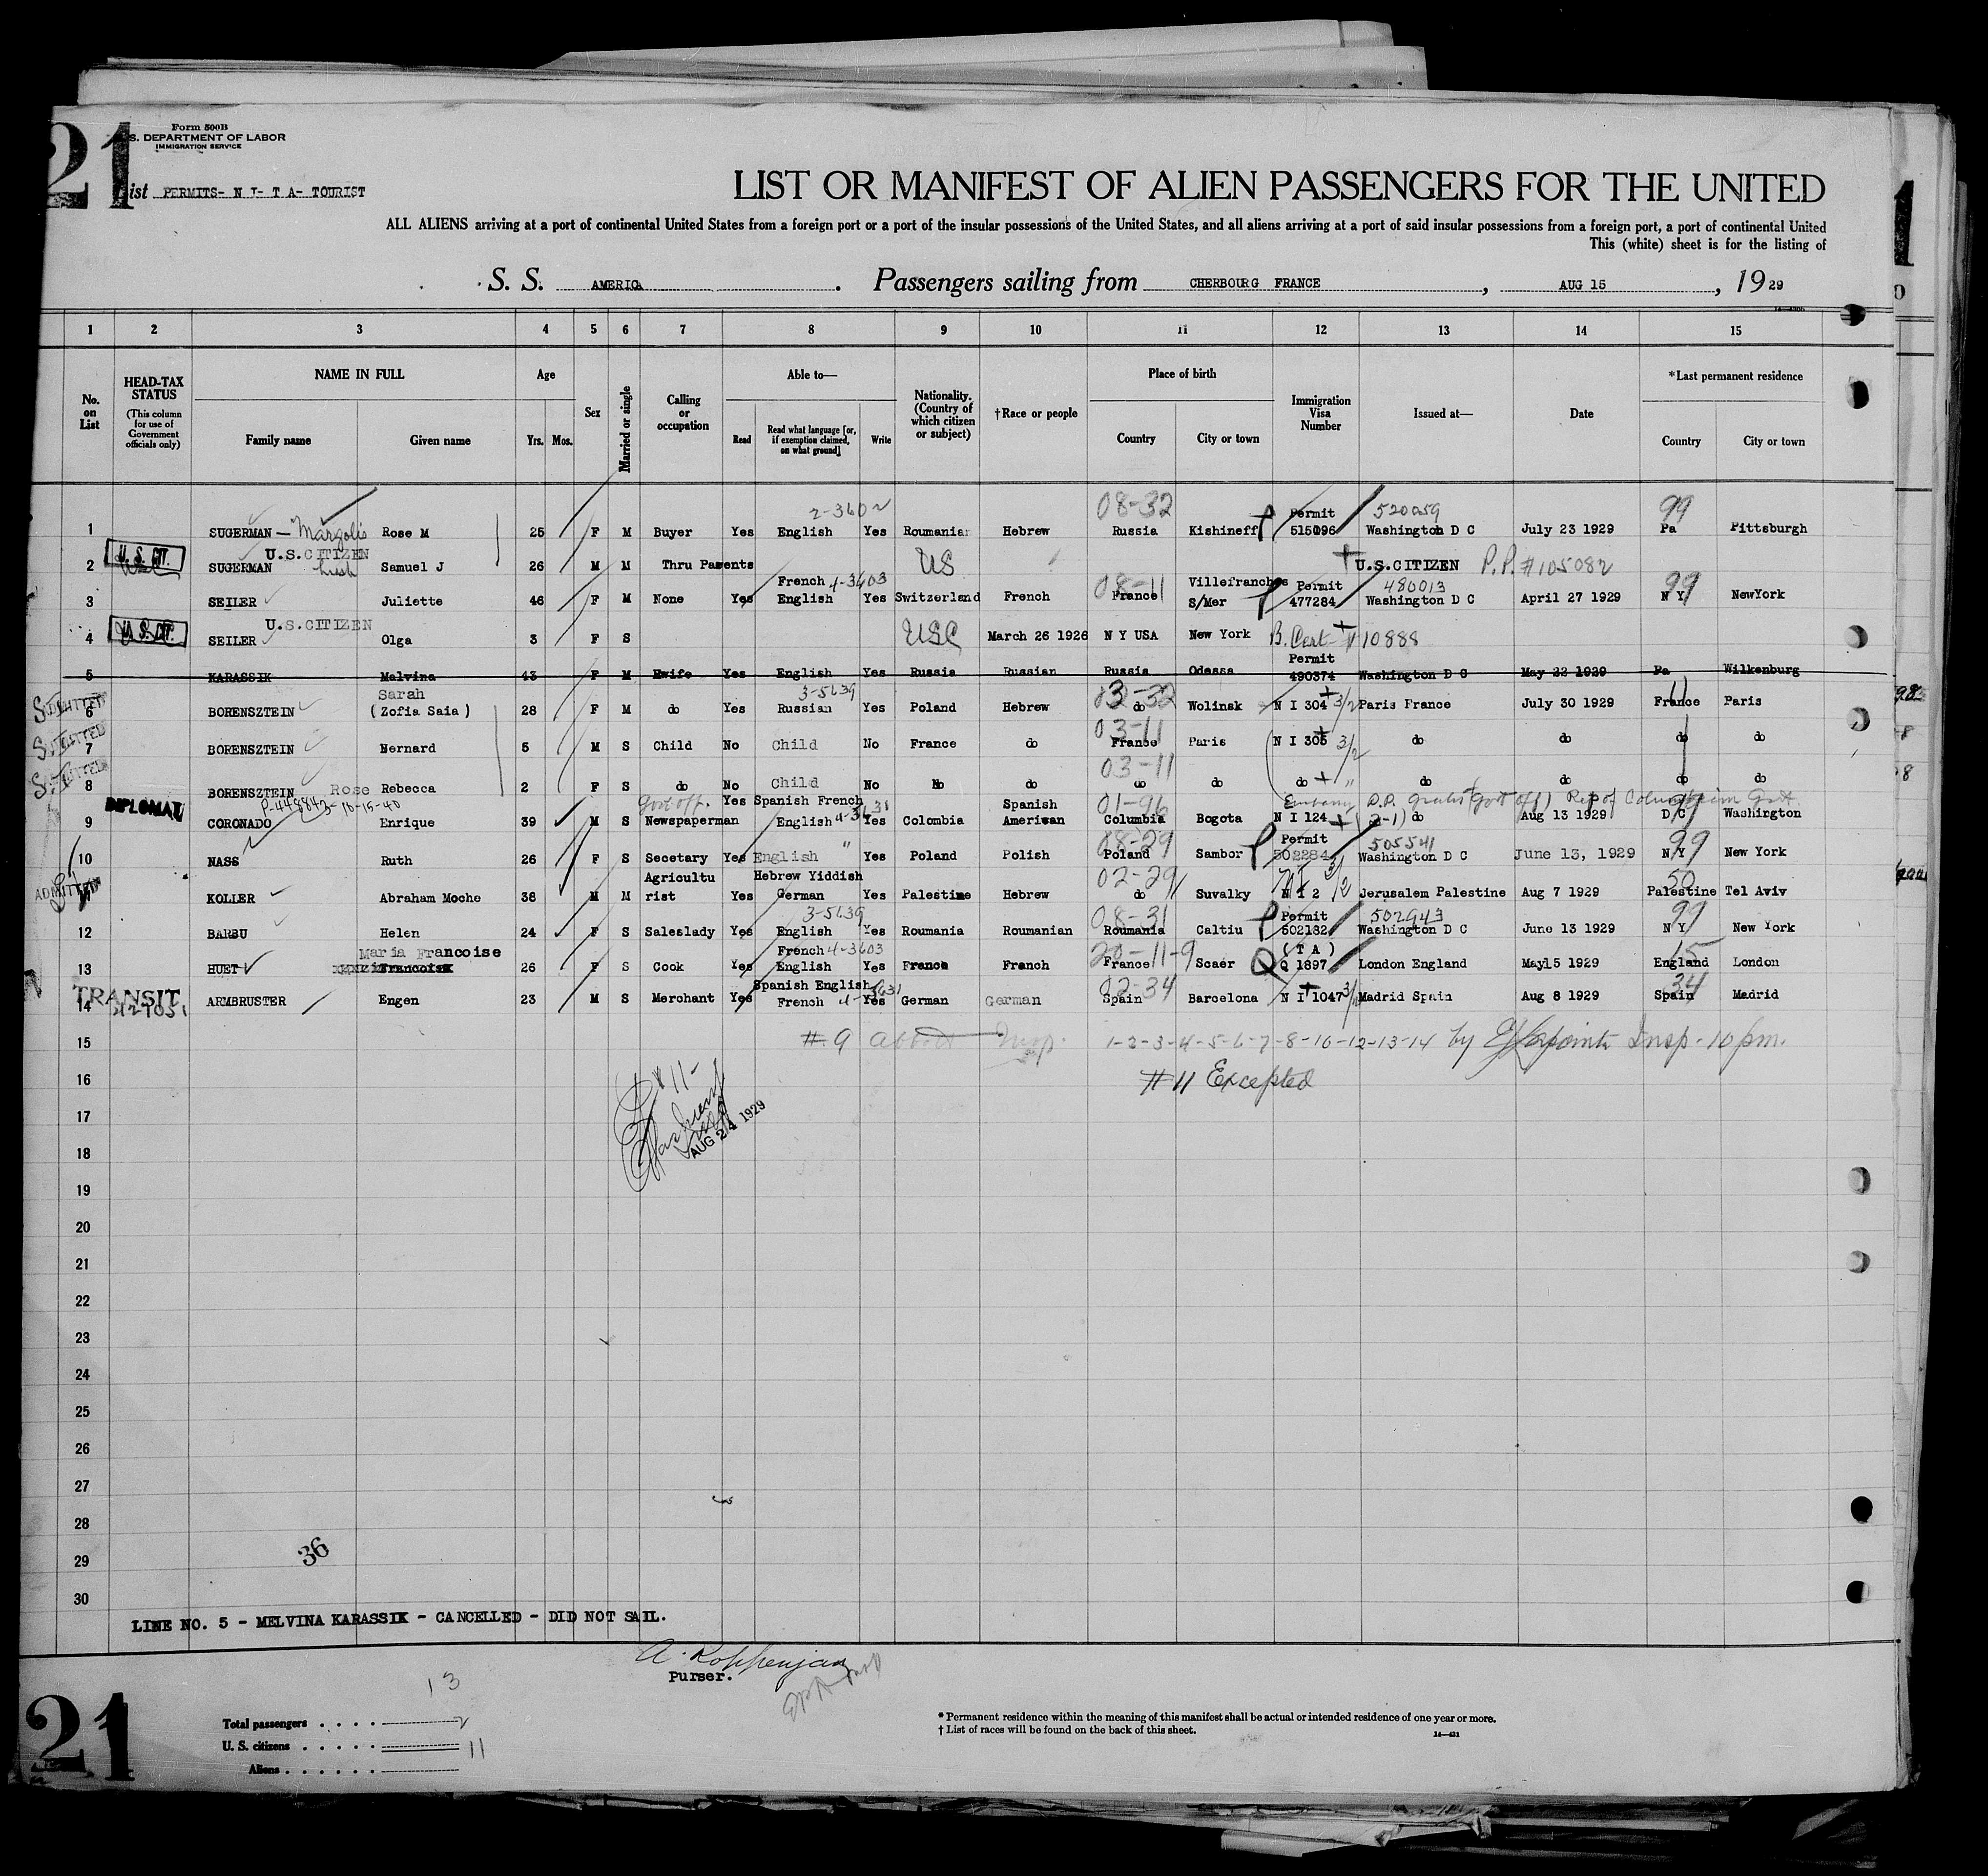 21
Form 500B
S. DEPARTMENT OF LABOR
IMMIGRATION SERVICE
ist PERMITS- N I- T A- TOURIST
LIST OR MANIFEST OF ALIEN PASSENGERS FOR THE UNITED
ALL ALIENS arriving at a port of continental United States from a foreign port or a port of the insular possessions of the United States, and all aliens arriving at a port of said insular possessions from a foreign port, a port of continental United
This (white) sheet is for the listing of
S. S. AMERICA. Passengers sailing from CHERBOURG FRANCE, AUG 15, 1929
1 2 3 4 5 6 7 8 9 10 11 12 13 14 15
No. on List
HEAD-TAX STATUS (This column for use of Government officials only)
NAME IN FULL Family name Given name
Age Yrs. Mos.
Sex
Married or single
Calling or occupation
Able to— Read Read what language [or, if exemption claimed, on what ground] Write
Nationality. (Country of which citizen or subject)
†Race or people
Place of birth Country City or town
Immigration Visa Number
Issued at—
Date
*Last permanent residence Country City or town
2-3602 08-32 Permit 520059 99
1 SUGERMAN - Margolis Rose M 25 F M Buyer Yes English Yes Roumania Hebrew Russia Kishineff 515096 Washington D C July 23 1929 Pa Pittsburgh
U.S. CIT. U.S.CITIZEN
2 SUGERMAN Samuel J 26 M M Thru Parents US U.S.CITIZEN P.P. #105082
French 4-3603 08-11 Villefranches Permit 480013 99
3 SEILER Juliette 46 F M None Yes English Yes Switzerland French France S/Mer 477284 Washington D C April 27 1929 N Y NewYork
U.S. CIT. U.S.CITIZEN
4 SEILER Olga 3 F S USC March 26 1926 N Y USA New York B. Cert- #10888
Permit
5 KARASSIK Malvina 43 F M Hwife Yes English Yes Russia Russian Russia Odessa 490374 Washington D C May 22 1929 Pa Wilkenburg
Sarah 3-5639
6 BORENSZTEIN (Zofia Saia) 28 F M do Yes Russian Yes Poland Hebrew do Wolinsk N I 304 3/2 Paris France July 30 1929 France Paris
03-11
7 BORENSZTEIN Bernard 5 M S Child No Child No France do France Paris N I 305 3/2 do do do do
03-11
8 BORENSZTEIN Rose Rebecca 2 F S do No Child No do do do do do do do do do
DIPLOMAT P-448843-10-15-40 Govt off. Yes Spanish French Spanish 01-96
9 CORONADO Enrique 39 M S Newspaperman English Yes Colombia American Columbia Bogota N I 124 (3-1) do Aug 13 1929 D C Washington
08-29 Permit 505541 99
10 NASS Ruth 26 F S Secetary Yes English " Yes Poland Polish Poland Sambor 502284 Washington D C June 13, 1929 N Y New York
ADMITTED Agricultu Hebrew Yiddish 02-29 50
11 KOLLER Abraham Moche 38 M M rist Yes German Yes Palestine Hebrew do Suvalky N I 2 Jerusalem Palestine Aug 7 1929 Palestine Tel Aviv
3-5639 08-31 Permit 502943 99
12 BARBU Helen 24 F S Saleslady Yes English Yes Roumania Roumanian Roumania Caltiu 502182 Washington D C June 13 1929 N Y New York
Maria Francoise French 4-3603 20-11-9 (T A) 15
13 HUET 26 F S Cook Yes English Yes France French France Scaër Q 1897 London England May15 1929 England London
TRANSIT Spanish English 02-34 34
14 ARMBRUSTER Engen 23 M S Merchant Yes French Yes German German Spain Barcelona N I 1047 Madrid Spain Aug 8 1929 Spain Madrid
15 #9 Abbott Insp. 1-2-3-4-5-6-7-8-10-12-13-14 by Insp. 10 pm.
16 #11 Excepted
#11-
AUG 24 1929
17
18
19
20
21
22
23
24
25
26
27
28
29
36
30
LINE NO. 5 - MELVINA KARASSIK - CANCELLED - DID NOT SAIL.
A. Koppenjan
Purser.
21
13
Total passengers . . . . 2
U. S. citizens . . . . . 11
Aliens . . . . . .
* Permanent residence within the meaning of this manifest shall be actual or intended residence of one year or more.
† List of races will be found on the back of this sheet.
14—431